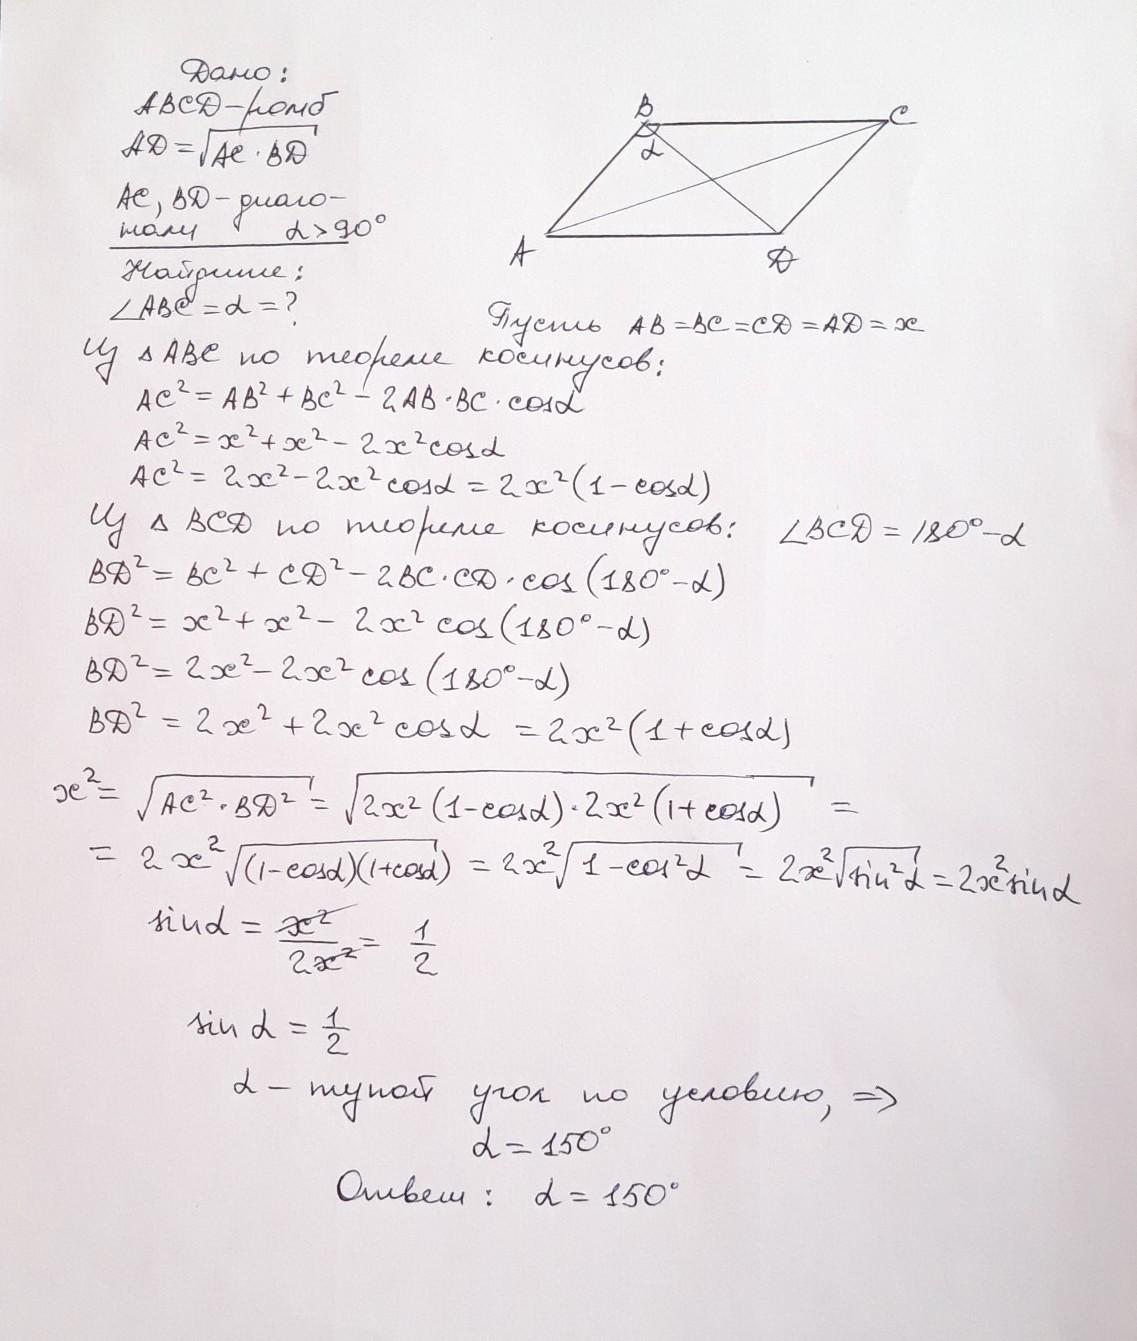 Дано:
ABCD - ромб
AD = √(AC · BD)
AC, BD - диаго-
нали α > 90°
Найдите:
∠ABC = α = ?
B
C
α
A
D
Пусть AB = BC = CD = AD = x
Из △ABC по теореме косинусов:
AC² = AB² + BC² - 2AB · BC · cosα
AC² = x² + x² - 2x² cosα
AC² = 2x² - 2x² cosα = 2x² (1 - cosα)
Из △ BCD по теореме косинусов: ∠BCD = 180° - α
BD² = BC² + CD² - 2BC · CD · cos (180° - α)
BD² = x² + x² - 2x² cos (180° - α)
BD² = 2x² - 2x² cos (180° - α)
BD² = 2x² + 2x² cosα = 2x² (1 + cosα)
x² = √(AC² · BD²) = √(2x² (1 - cosα) · 2x² (1 + cosα)) =
= 2x² √((1 - cosα)(1 + cosα)) = 2x² √(1 - cos²α) = 2x² √(sin²α) = 2x² sinα
sinα = x²/2x² = 1/2
sin α = 1/2
α - тупой угол по условию, ⇒
α = 150°
Ответ: α = 150°